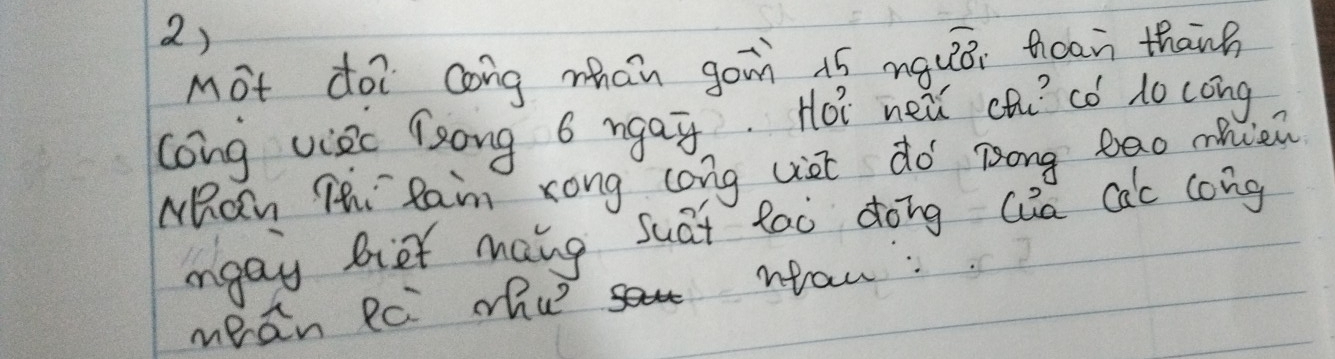 2)
Một đội công nhân gồm 15 người hoàn thành
công việc trong 6 ngày. Hỏi nếu chỉ có 10 công
nhân thì làm xong công việt đó trong bao nhiêu
ngày biết năng suất lao động của các công
nhân là như nhau:.